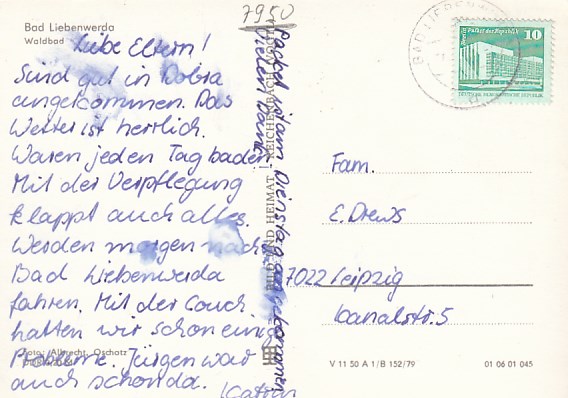 Bad Liebenwerda
Waldbad
7950
Liebe Eltern!
Sind gut in Dobra
angekommen. Das
Wetter ist herrlich.
Waren jeden Tag baden.
Mit der Verpflegung
klappt auch alles.
Werden morgen nach
Bad Liebenwerda
fahren. Mit der Couch
hatten wir schon einige
Probleme. Jürgen war
auch schon da.
Katrin
Paket ist am Dienstag angekommen
Vielen Dank.
Foto: Albrecht, Oschatz
BILD UND HEIMAT REICHENBACH
BAD LIEBENWERDA
Palast der Republik
10
DEUTSCHE DEMOKRATISCHE REPUBLIK
Fam.
E. Drews
7022 Leipzig
Kanalstr. 5
V 11 50 A 1/B 152/79
01 06 01 045